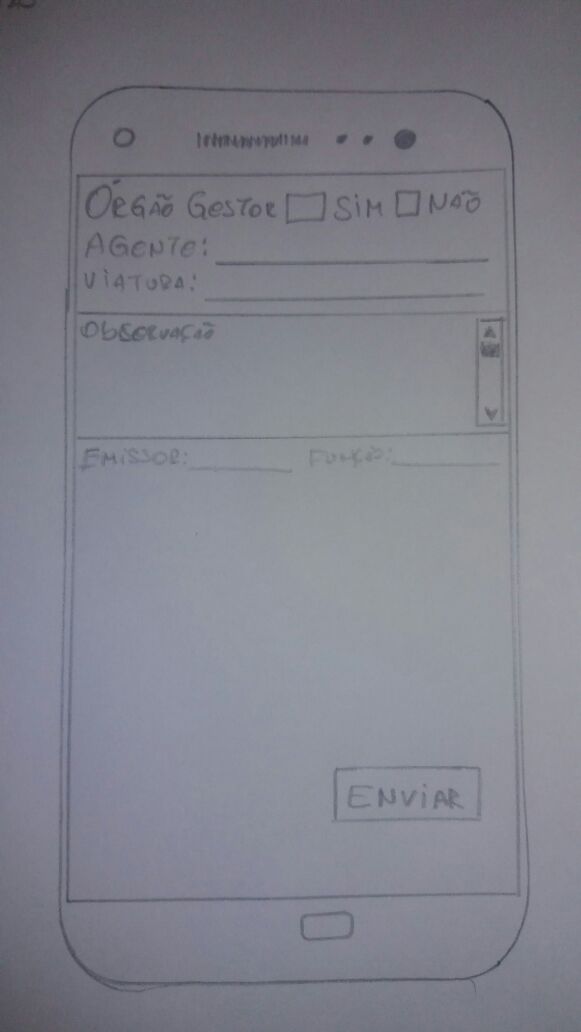 Órgão Gestor Sim Não
Agente:
Viatura:
Observação
Emissor: Função:
Enviar